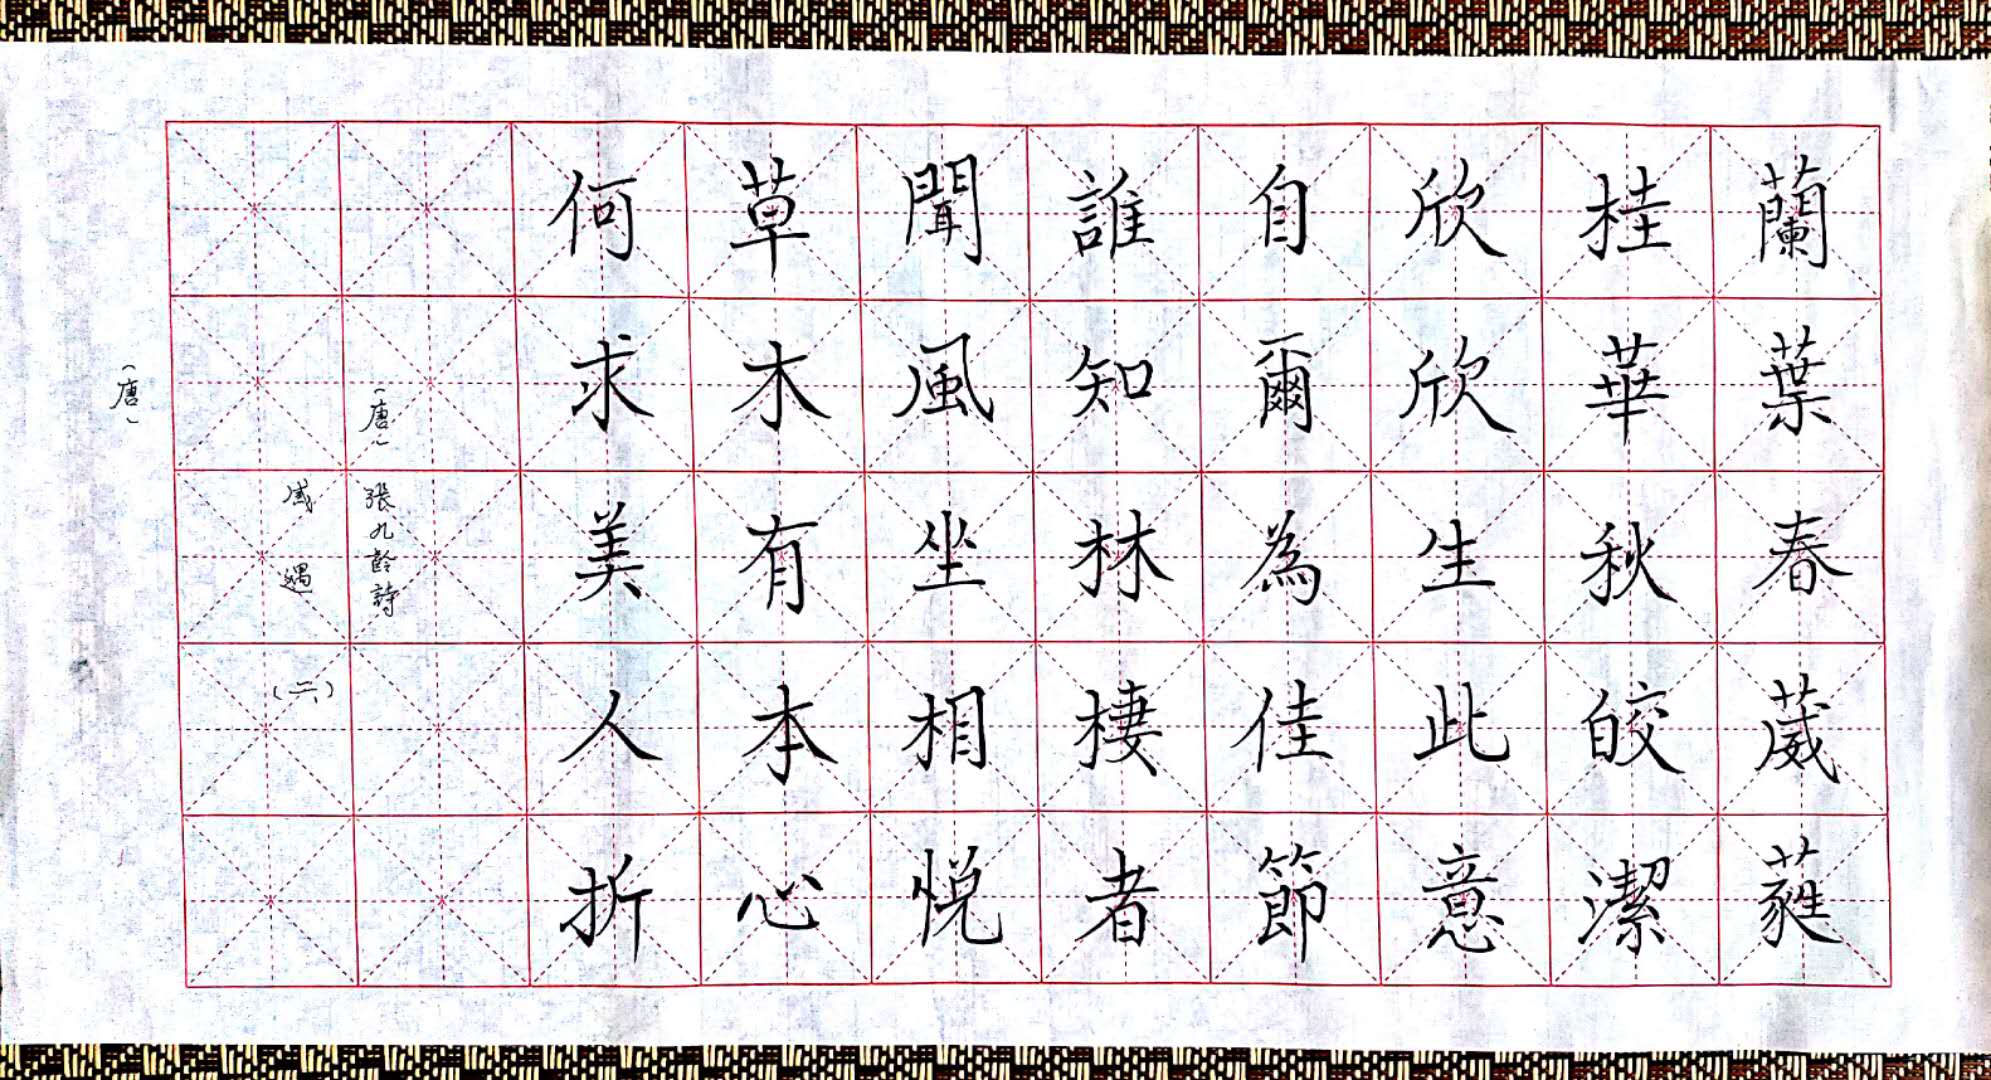 蘭葉春葳蕤
桂華秋皎潔
欣欣生此意
自爾為佳節
誰知林棲者
聞風坐相悅
草木有本心
何求美人折
(唐)張九齡詩
感遇(二)
(唐)